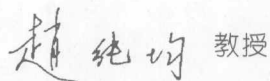 赵纯均 教授